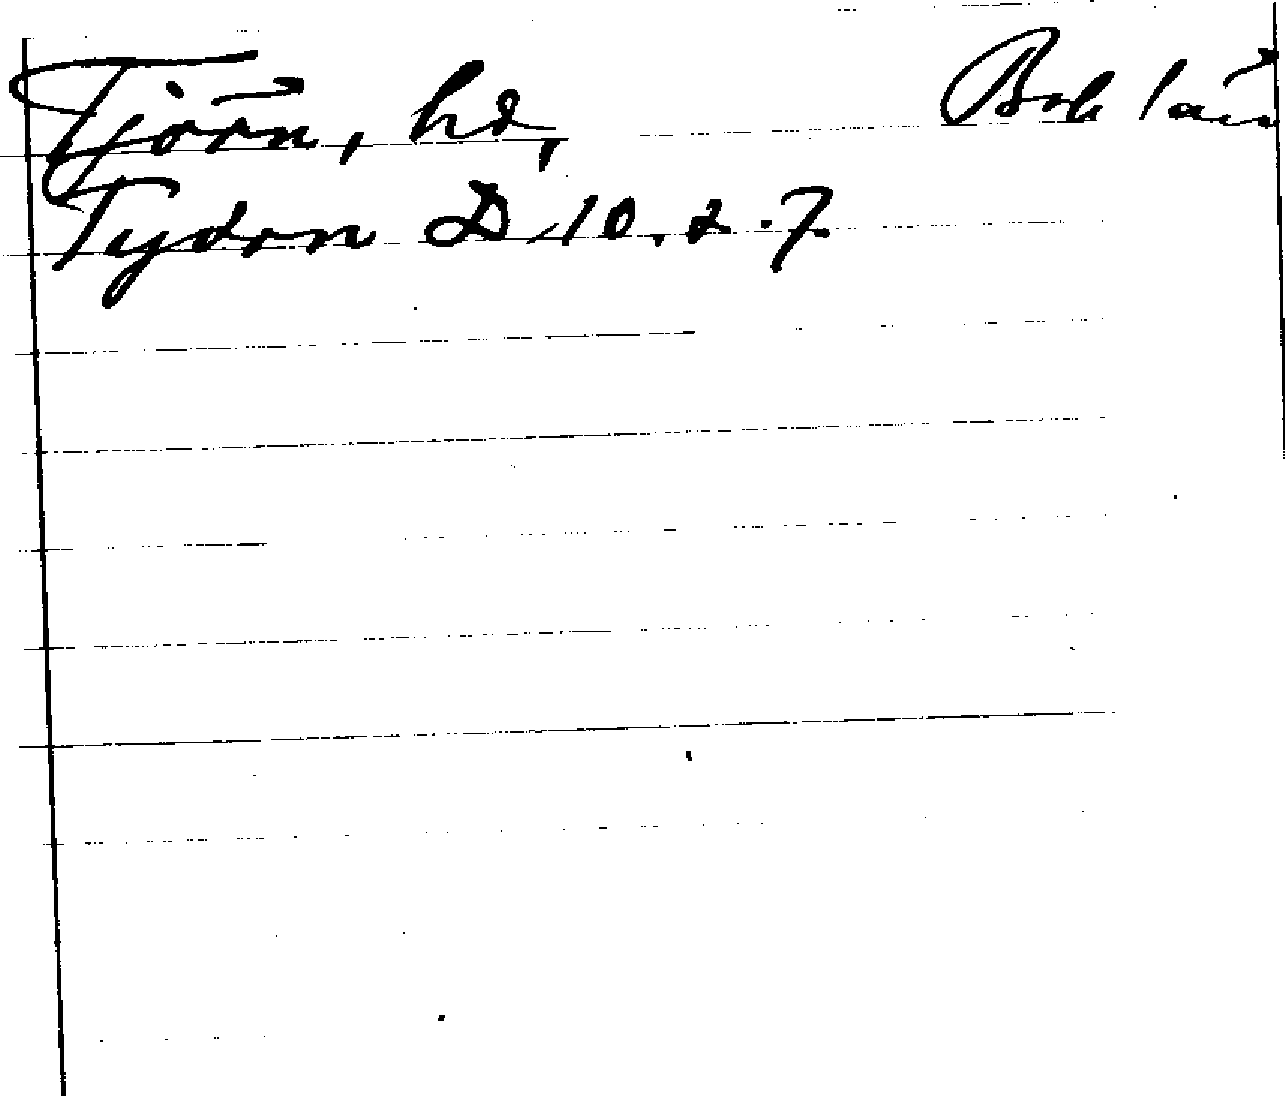 Tjörn, hd, Boh län
Tydorn D 10.2.7.